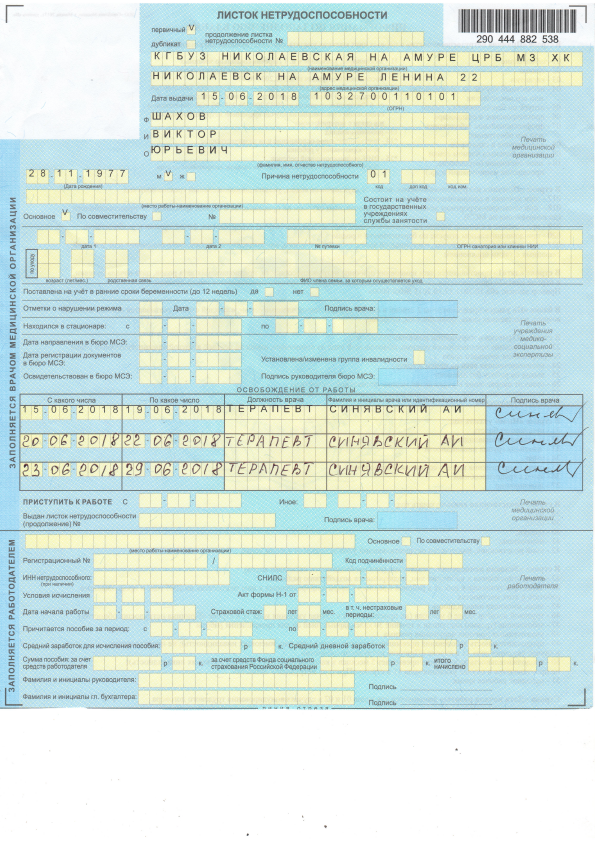 ЛИСТОК НЕТРУДОСПОСОБНОСТИ
290 444 882 538
первичный V продолжение листка нетрудоспособности №
дубликат
КГБУЗ НИКОЛАЕВСКАЯ НА АМУРЕ ЦРБ МЗ ХК
(наименование медицинской организации)
НИКОЛАЕВСК НА АМУРЕ ЛЕНИНА 22
(адрес медицинской организации)
Дата выдачи 15-06-2018 1032700110101
(ОГРН)
Ф ШАХОВ
И ВИКТОР
О ЮРЬЕВИЧ
(фамилия, имя, отчество нетрудоспособного)
Печать
медицинской
организации
28-11-1977 м V ж Причина нетрудоспособности 01
(Дата рождения) код доп код код изм
(место работы-наименование организации)
Состоит на учёте
в государственных
учреждениях
службы занятости
Основное V По совместительству №
дата 1 дата 2 № путевки ОГРН санатория или клиники НИИ
по уходу
возраст (лет/мес.) родственная связь ФИО члена семьи, за которым осуществляется уход
Поставлена на учёт в ранние сроки беременности (до 12 недель) да нет
Отметки о нарушении режима Дата Подпись врача:
Находился в стационаре: с по
Дата направления в бюро МСЭ:
Дата регистрации документов
в бюро МСЭ: Установлена/изменена группа инвалидности
Освидетельствован в бюро МСЭ: Подпись руководителя бюро МСЭ:
Печать
учреждения
медико-
социальной
экспертизы
ЗАПОЛНЯЕТСЯ ВРАЧОМ МЕДИЦИНСКОЙ ОРГАНИЗАЦИИ
ОСВОБОЖДЕНИЕ ОТ РАБОТЫ
С какого числа По какое число Должность врача Фамилия и инициалы врача или идентификационный номер Подпись врача
15-06-2018 19-06-2018 ТЕРАПЕВТ СИНЯВСКИЙ АИ
20-06-2018 22-06-2018 ТЕРАПЕВТ СИНЯВСКИЙ АИ
23-06-2018 29-06-2018 ТЕРАПЕВТ СИНЯВСКИЙ АИ
ПРИСТУПИТЬ К РАБОТЕ С Иное:
Выдан листок нетрудоспособности
(продолжение) № Подпись врача:
Печать
медицинской
организации
ЗАПОЛНЯЕТСЯ РАБОТОДАТЕЛЕМ
(место работы-наименование организации) Основное По совместительству
Регистрационный № / Код подчинённости
ИНН нетрудоспособного:
(при наличии) СНИЛС
Печать
работодателя
Условия исчисления Акт формы Н-1 от
Дата начала работы Страховой стаж: лет мес. в т. ч. нестраховые
периоды: лет мес.
Причитается пособие за период: с по
Средний заработок для исчисления пособия: р к. Средний дневной заработок р к.
Сумма пособия: за счет
средств работодателя р к. за счет средств Фонда социального
страхования Российской Федерации р к. ИТОГО
НАЧИСЛЕНО р к.
Фамилия и инициалы руководителя: Подпись
Фамилия и инициалы гл. бухгалтера: Подпись